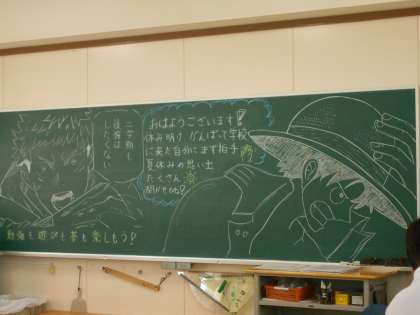 二学期も
後悔は
したくない
おはようございます!
休み明け がんばって学校
に来た自分にまず拍手
夏休みの思い出
たくさん
聞かせてね!
勉強も遊びも恋も楽しもう!